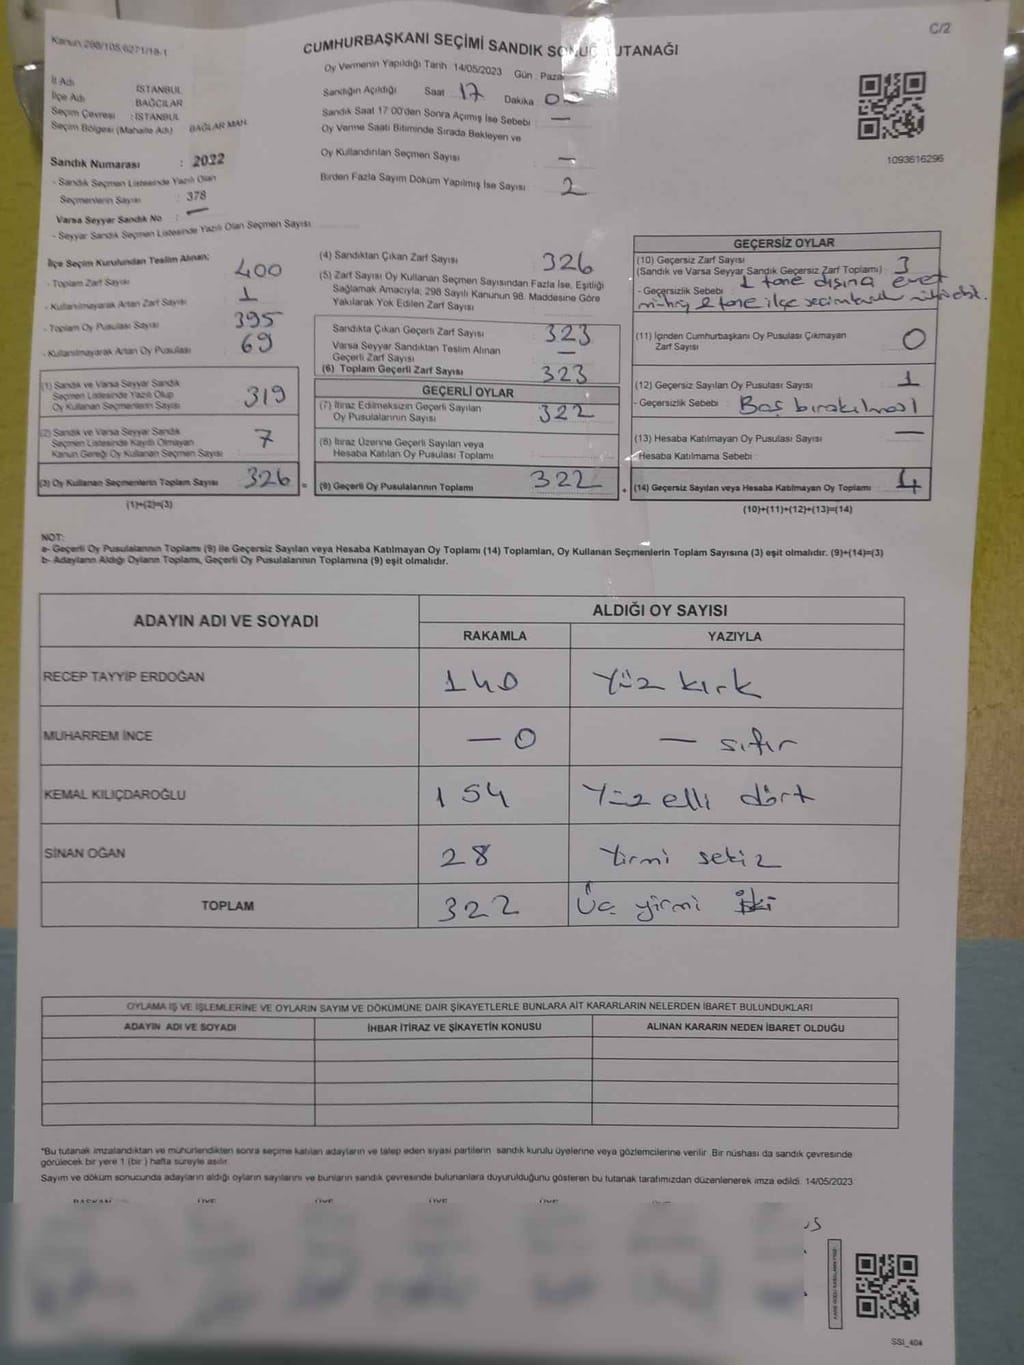 C/2
Kanun:298/105,6271/18-1
CUMHURBAŞKANI SEÇİMİ SANDIK SONUÇ TUTANAĞI
Oy Vermenin Yapıldığı Tarih 14/05/2023 Gün : Pazar
İl Adı : İSTANBUL
İlçe Adı : BAĞCILAR
Seçim Çevresi : İSTANBUL
Seçim Bölgesi (Mahalle Adı) BAĞLAR MAH.
Sandığın Açıldığı Saat 17 Dakika
Sandık Saat 17:00'den Sonra Açımış İse Sebebi : —
Oy Verme Saati Bitiminde Sırada Bekleyen ve
Oy Kullandırılan Seçmen Sayısı —
Birden Fazla Sayım Döküm Yapılmış İse Sayısı 2
1093616296
Sandık Numarası : 2022
- Sandık Seçmen Listesinde Yazılı Olan
Seçmenlerin Sayısı : 378
Varsa Seyyar Sandık No : —
- Seyyar Sandık Seçmen Listesinde Yazılı Olan Seçmen Sayısı
İlçe Seçim Kurulundan Teslim Alınan;
- Toplam Zarf Sayısı 400
- Kullanılmayarak Artan Zarf Sayısı 1
- Toplam Oy Pusulası Sayısı 395
- Kullanılmayarak Artan Oy Pusulası 69
(1) Sandık ve Varsa Seyyar Sandık
Seçmen Listesinde Yazılı Olup
Oy Kullanan Seçmenlerin Sayısı 319
(2) Sandık ve Varsa Seyyar Sandık
Seçmen Listesinde Kayıtlı Olmayan
Kanun Gereği Oy Kullanan Seçmen Sayısı 7
(3) Oy Kullanan Seçmenlerin Toplam Sayısı 326 =
(1)+(2)=(3)
(4) Sandıktan Çıkan Zarf Sayısı 326
(5) Zarf Sayısı Oy Kullanan Seçmen Sayısından Fazla İse, Eşitliği
Sağlamak Amacıyla, 298 Sayılı Kanunun 98. Maddesine Göre
Yakılarak Yok Edilen Zarf Sayısı
Sandıkta Çıkan Geçerli Zarf Sayısı 323
Varsa Seyyar Sandıktan Teslim Alınan
Geçerli Zarf Sayısı —
(6) Toplam Geçerli Zarf Sayısı 323
GEÇERLİ OYLAR
(7) İtiraz Edilmeksizin Geçerli Sayılan
Oy Pusulalarının Sayısı 322
(8) İtiraz Üzerine Geçerli Sayılan veya
Hesaba Katılan Oy Pusulası Toplamı
(9) Geçerli Oy Pusulalarının Toplamı 322 +
GEÇERSİZ OYLAR
(10) Geçersiz Zarf Sayısı
(Sandık ve Varsa Seyyar Sandık Geçersiz Zarf Toplamı) 3
- Geçersizlik Sebebi : 1 tane dışına evet
mührü 2 tane ilçe seçim
(11) İçinden Cumhurbaşkanı Oy Pusulası Çıkmayan
Zarf Sayısı 0
(12) Geçersiz Sayılan Oy Pusulası Sayısı 1
- Geçersizlik Sebebi : Boş bırakılması
(13) Hesaba Katılmayan Oy Pusulası Sayısı —
Hesaba Katılmama Sebebi :
(14) Geçersiz Sayılan veya Hesaba Katılmayan Oy Toplamı 4
(10)+(11)+(12)+(13)=(14)
NOT:
a- Geçerli Oy Pusulalarının Toplamı (9) ile Geçersiz Sayılan veya Hesaba Katılmayan Oy Toplamı (14) Toplamları, Oy Kullanan Seçmenlerin Toplam Sayısına (3) eşit olmalıdır. (9)+(14)=(3)
b- Adayların Aldığı Oyların Toplamı, Geçerli Oy Pusulalarının Toplamına (9) eşit olmalıdır.
ADAYIN ADI VE SOYADI ALDIĞI OY SAYISI
RAKAMLA YAZIYLA
RECEP TAYYİP ERDOĞAN 140 Yüz kırk
MUHARREM İNCE — 0 — sıfır
KEMAL KILIÇDAROĞLU 154 Yüz elli dört
SİNAN OĞAN 28 Yirmi sekiz
TOPLAM 322 Üç yirmi iki
OYLAMA İŞ VE İŞLEMLERİNE VE OYLARIN SAYIM VE DÖKÜMÜNE DAİR ŞİKAYETLERLE BUNLARA AİT KARARLARIN NELERDEN İBARET BULUNDUKLARI
ADAYIN ADI VE SOYADI İHBAR İTİRAZ VE ŞİKAYETİN KONUSU ALINAN KARARIN NEDEN İBARET OLDUĞU
*Bu tutanak imzalandıktan ve mühürlendikten sonra seçime katılan adayların ve talep eden siyasi partilerin sandık kurulu üyelerine veya gözlemcilerine verilir. Bir nüshası da sandık çevresinde
görülecek bir yere 1 (bir) hafta süreyle asılır.
Sayım ve döküm sonucunda adayların aldığı oyların sayılarını ve bunların sandık çevresinde bulunanlara duyurulduğunu gösteren bu tutanak tarafımızdan düzenlenerek imza edildi. 14/05/2023
BAŞKAN ÜYE ÜYE ÜYE ÜYE ÜYE
SSI_404